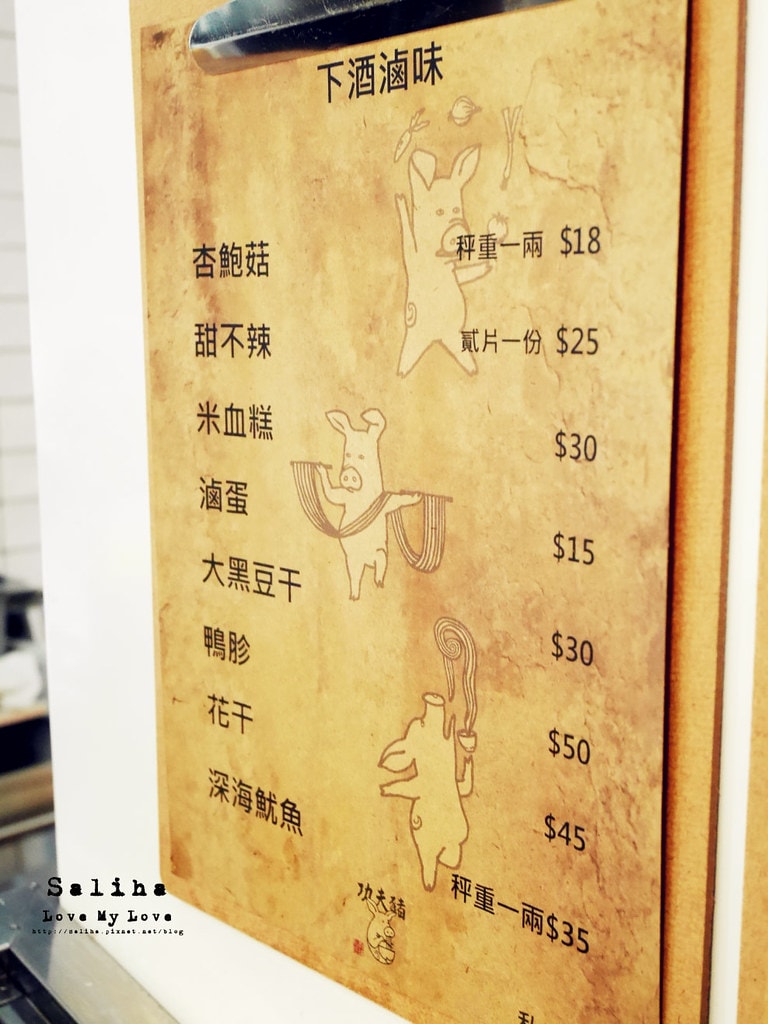 下酒滷味
杏鮑菇 秤重一兩 $18
甜不辣 貳片一份 $25
米血糕 $30
滷蛋 $15
大黑豆干 $30
鴨胗 $50
花干 $45
深海魷魚 秤重一兩$35
功夫豬
Saliha
Love My Love
http://saliha.pixnet.net/blog